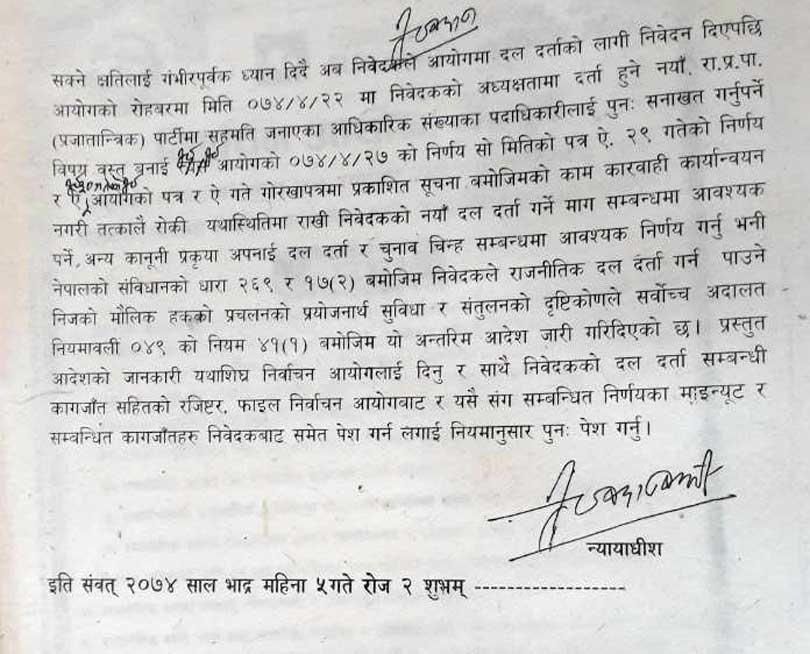 सक्ने क्षतिलाई गंभीरपूर्वक ध्यान दिदै अब निवेदकले आयोगमा दल दर्ताको लागी निवेदन दिएपछि
आयोगको रोहबरमा मिति ०७४/४/२२ मा निवेदकको अध्यक्षतामा दर्ता हुने नयाँ, रा.प्र.पा.
(प्रजातान्त्रिक) पार्टीमा सहमति जनाएका आधिकारिक संख्याका पदाधिकारीलाई पुनः सनाखत गर्नुपर्ने
विषय वस्तु बनाई आयोगको ०७४/४/२७ को निर्णय सो मितिको पत्र ऐ. २९ गतेको निर्णय
र ऐ. आयोगको पत्र र ऐ गते गोरखापत्रमा प्रकाशित सूचना बमोजिमको काम कारवाही कार्यान्वयन
नगरी तत्कालै रोकी यथास्थितिमा राखी निवेदकको नयाँ दल दर्ता गर्ने माग सम्बन्धमा आवश्यक
पर्ने, अन्य कानूनी प्रकृया अपनाई दल दर्ता र चुनाव चिन्ह सम्बन्धमा आवश्यक निर्णय गर्नु भनी
नेपालको संविधानको धारा २६९ र १७(२) बमोजिम निवेदकले राजनीतिक दल दर्ता गर्न पाउने
निजको मौलिक हकको प्रचलनको प्रयोजनार्थ सुविधा र संतुलनको दृष्टिकोणले सर्वोच्च अदालत
नियमावली ०४९ को नियम ४१(१) बमोजिम यो अन्तरिम आदेश जारी गरिदिएको छ। प्रस्तुत
आदेशको जानकारी यथाशिघ्र निर्वाचन आयोगलाई दिनु र साथै निवेदकको दल दर्ता सम्बन्धी
कागजाँत सहितको रजिष्टर, फाइल निर्वाचन आयोगवाट र यसै संग सम्बन्धित निर्णयका माइन्यूट र
सम्वन्धित कागजाँतहरु निवेदकबाट समेत पेश गर्न लगाई नियमानुसार पुनः पेश गर्नु।
न्यायाधीश
इति संवत् २०७४ साल भाद्र महिना ५ गते रोज २ शुभम् ------------------